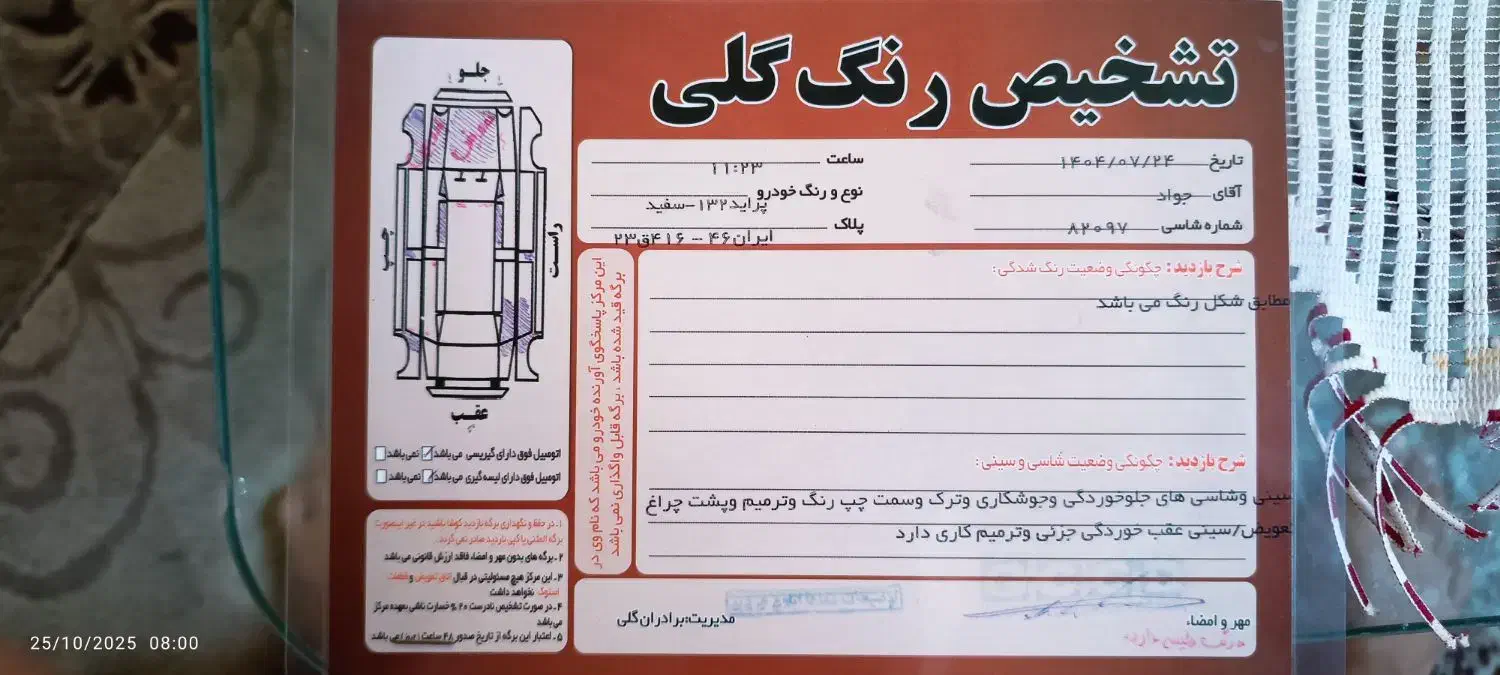 تشخیص رنگ گلی
تاریخ ۱۴۰۴/۰۷/۲۴
ساعت ۱۱:۲۳
آقای جواد
نوع و رنگ خودرو پراید۱۳۲-سفید
شماره شاسی ۸۲۰۹۷
پلاک ایران۴۶ - ۴۱۶ق۲۳
شرح بازدید: چگونگی وضعیت رنگ شدگی:
مطابق شکل رنگ می باشد
شرح بازدید: چگونگی وضعیت شاسی و سینی:
سینی وشاسی های جلوخوردگی وجوشکاری وترک وسمت چپ رنگ وترمیم وپشت چراغ
تعویض/سینی عقب خوردگی جزئی وترمیم کاری دارد
مهر و امضاء
مدیریت:برادران گلی
این مرکز پاسخگوی آورنده خودرو می باشد که نام وی در
برگه قید شده باشد ، برگه قابل واگذاری نمی باشد
جلو
چپ
راست
عقب
اتومبیل فوق دارای گیربسی می باشد نمی باشد
اتومبیل فوق دارای لیسه گیری می باشد نمی باشد
۱- در حفظ و نگهداری برگه بازدید کوشا باشید در غیر اینصورت
برگه المثنی یا کپی بازدید صادر نمی گردد.
۲- برگه های بدون مهر و امضاء فاقد ارزش قانونی می باشد
۳- این مرکز هیچ مسئولیتی در قبال اتاق تعویض و قطعات
استوک نخواهد داشت
۴- در صورت تشخیص نادرست ۲۰٪ خسارت ناشی بعهده مرکز
می باشد
۵- اعتبار این برگه از تاریخ صدور ۴۸ ساعت می باشد
25/10/2025 08:00